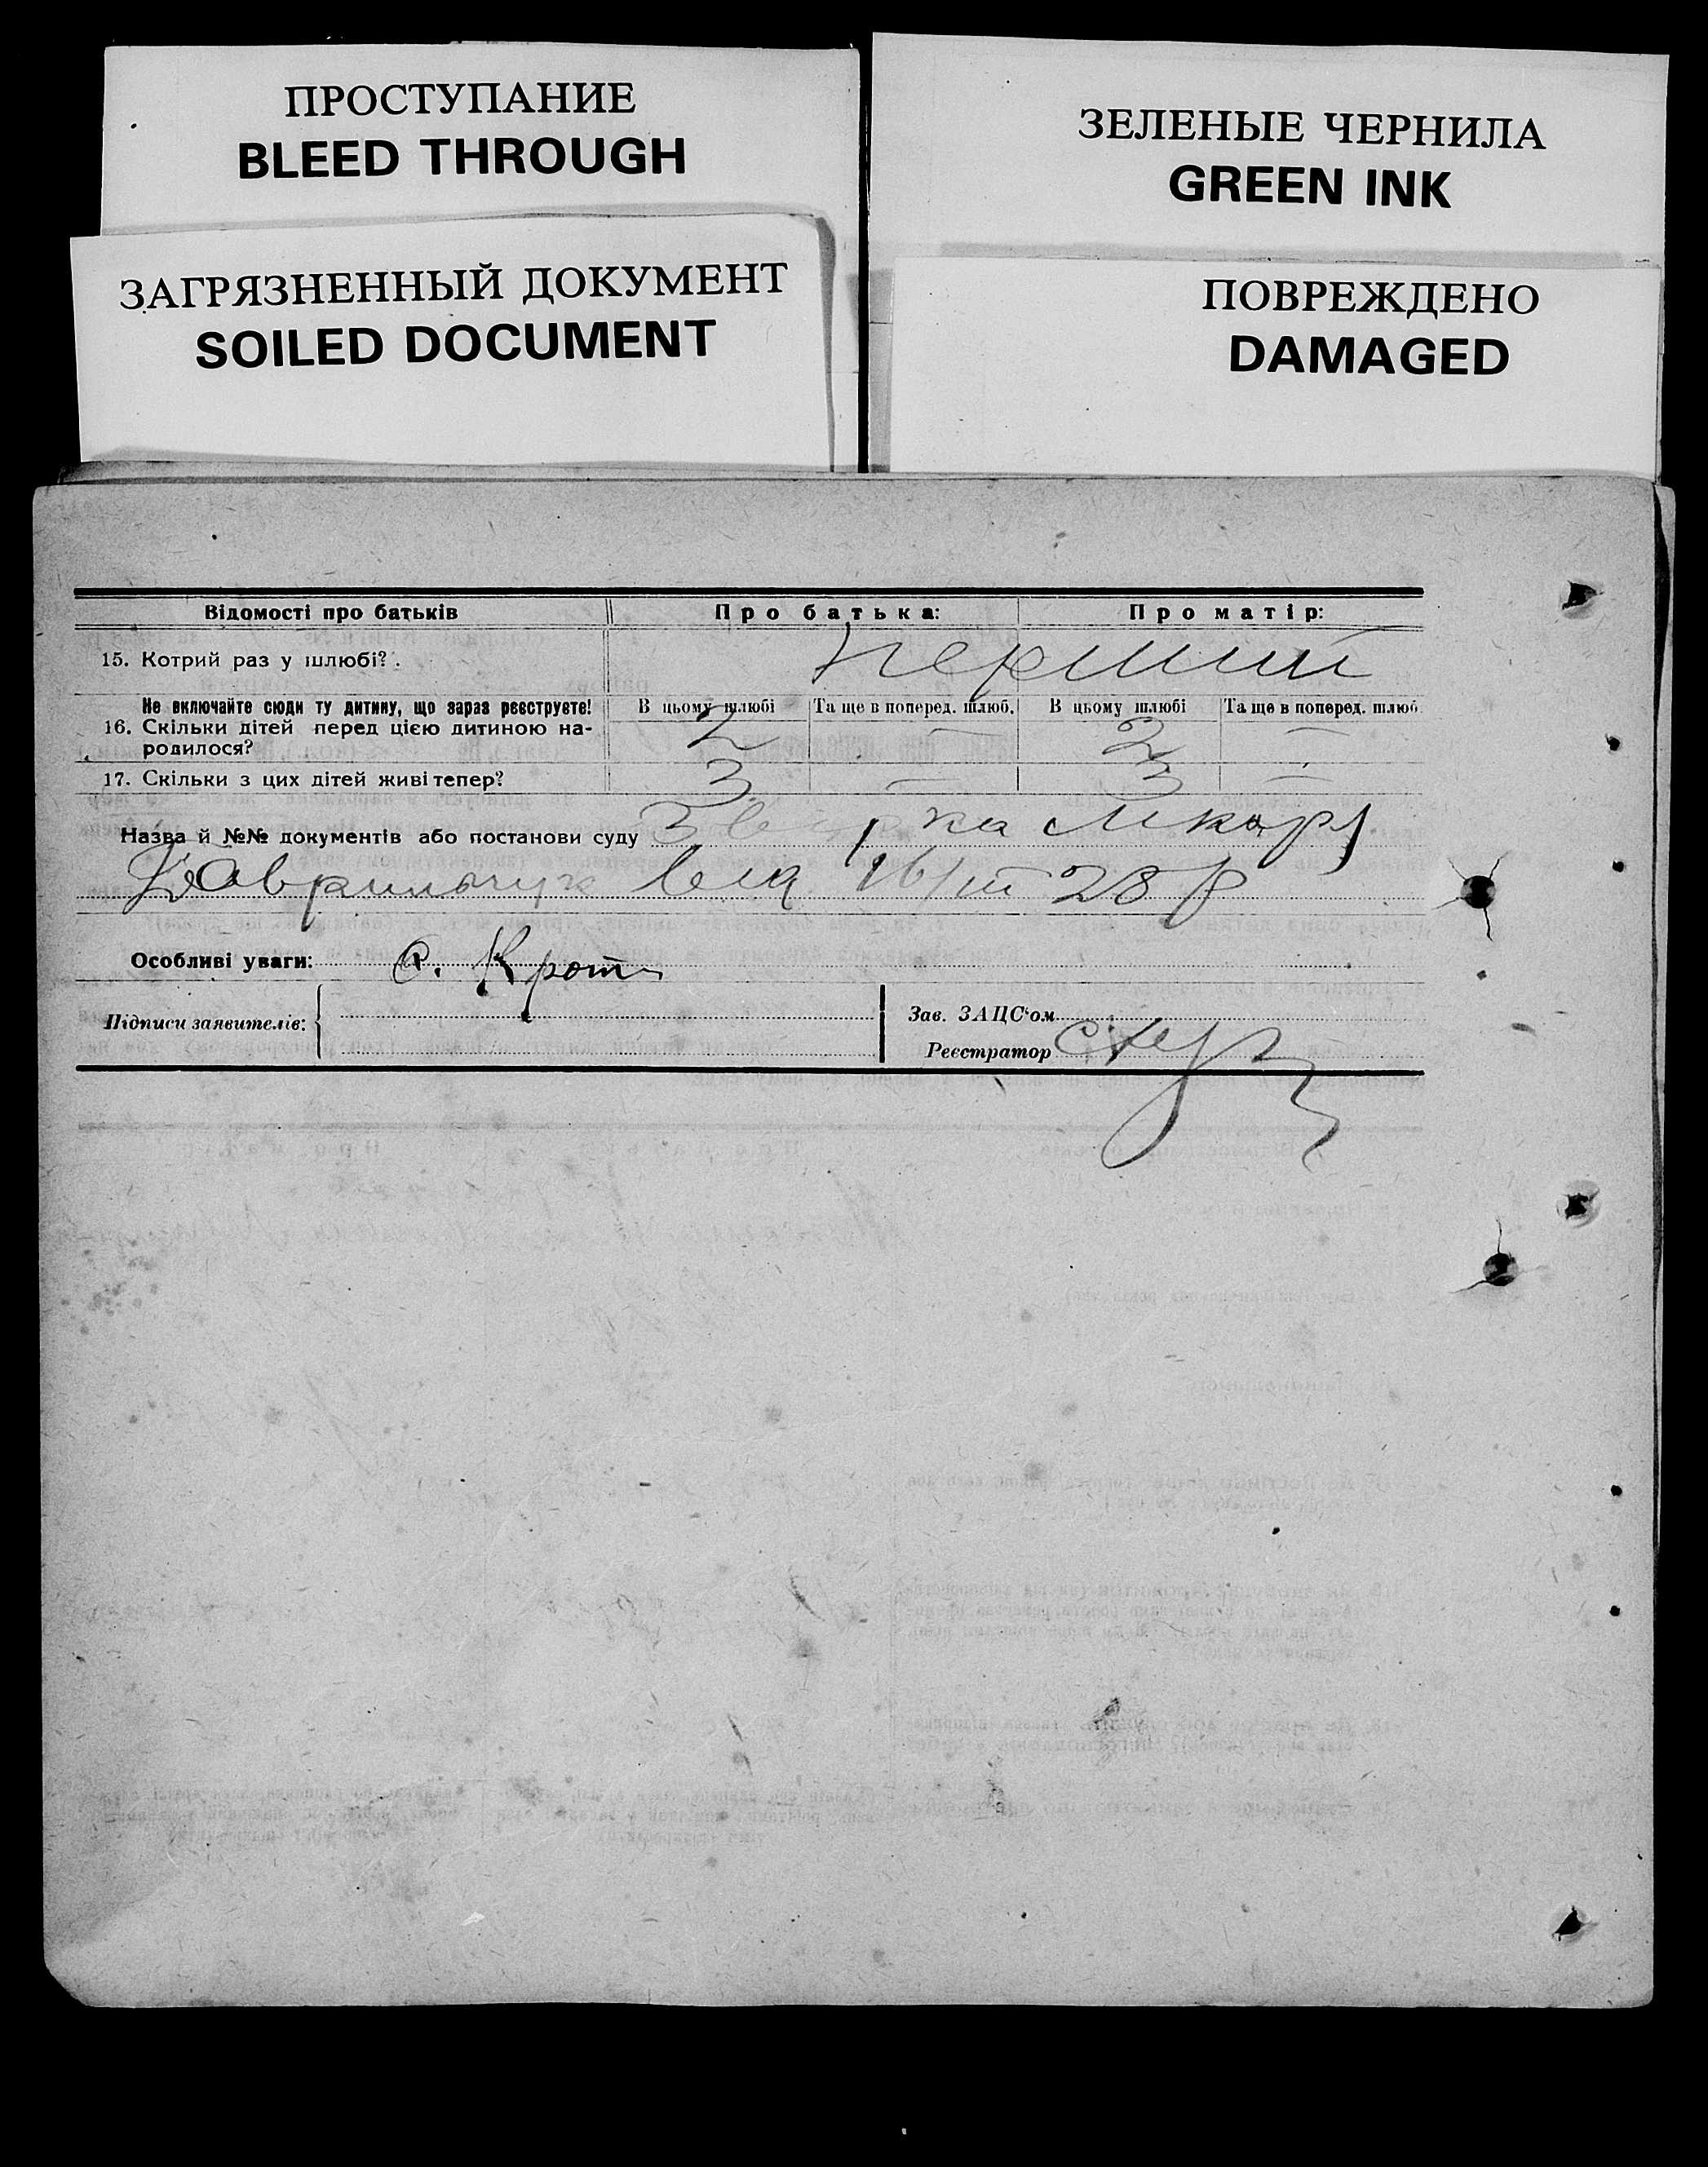 ПРОСТУПАНИЕ
BLEED THROUGH
ЗЕЛЕНЫЕ ЧЕРНИЛА
GREEN INK
ЗАГРЯЗНЕННЫЙ ДОКУМЕНТ
SOILED DOCUMENT
ПОВРЕЖДЕНО
DAMAGED
Відомості про батьків Про батька: Про матір:
15. Котрий раз у шлюбі? перший
Не включайте сюди ту дитину, що зараз реєструєте! В цьому шлюбі Та ще в поперед. шлюб. В цьому шлюбі Та ще в поперед. шлюб.
16. Скільки дітей перед цією дитиною на-
родилося? 2 — 2 —
17. Скільки з цих дітей живі тепер? 3 — 3 —
Назва й №№ документів або постанови суду
16/III 28 р
Особливі уваги:
Підписи заявителів:
Зав. ЗАЦС'ом
Реєстратор